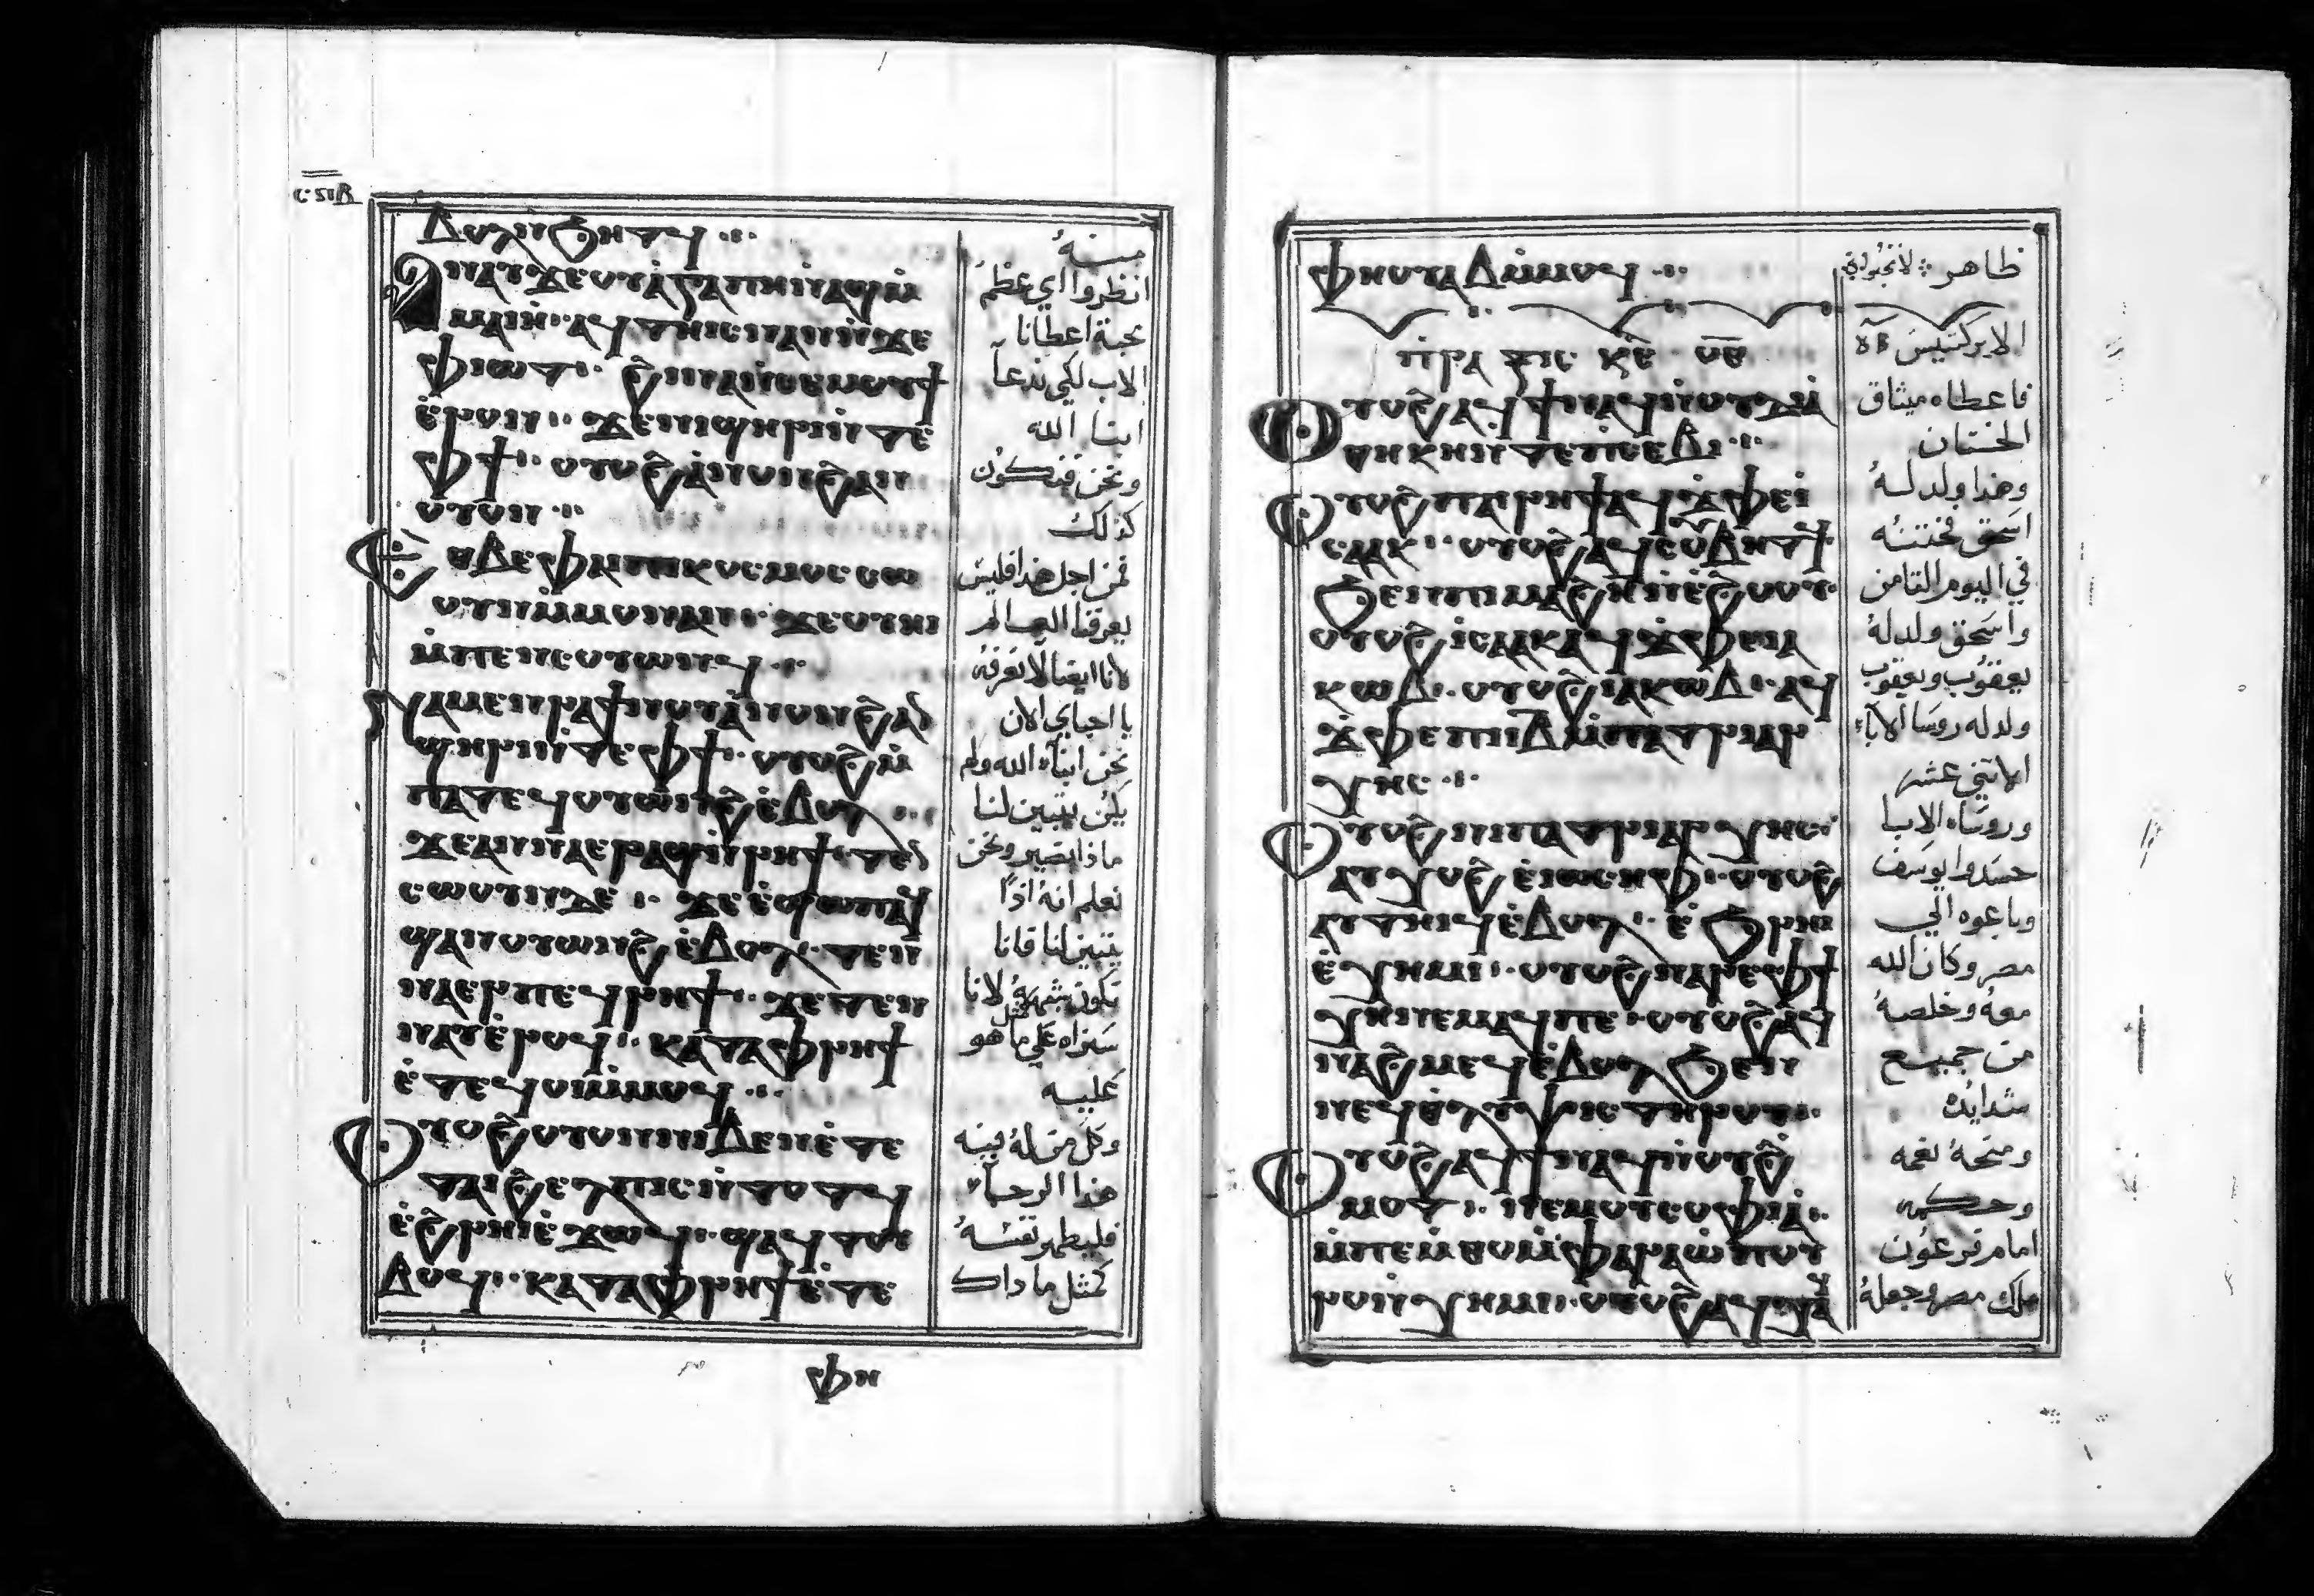 ⲃⲟⲗⲛ̀ϧⲏⲧϥ
ⲁⲛⲁⲩ ϫⲉ ⲟⲩⲁ̀ϣ ⲁⲡⲏ ⲛ̀ⲁⲅⲁⲡⲏ
ⲁϥⲧⲏⲓⲥ ⲛⲁⲛ ⲛ̀ϫⲉ
ⲫⲓⲱⲧ ϩⲓⲛⲁ ⲛ̀ⲥⲉⲙⲟⲩϯ
ⲉ̀ⲣⲟⲛ ϫⲉ ⲛⲓϣⲏⲣⲓ ⲛ̀ⲧⲉ
ⲫϯ ⲟⲩⲟϩ ⲁ̀ⲛⲟⲛ ϩⲁⲛ
ⲟⲩⲟⲛ
ⲉⲑⲃⲉ ⲫⲁⲓ ⲡⲓⲕⲟⲥⲙⲟⲥ ⲥⲱ
ⲟⲩⲛ ⲙ̀ⲙⲟⲛ ⲁⲛ ϫⲉ ⲟⲩⲏⲓ
ⲙ̀ⲡⲉⲛⲥⲟⲩⲱⲛϥ
ⲛⲁⲙⲉⲛⲣⲁϯ ϯⲛⲟⲩ ⲁ̀ⲛⲟⲛ ϩⲁⲛ
ϣⲏⲣⲓ ⲛ̀ⲧⲉ ⲫϯ ⲟⲩⲟϩ ⲙ̀
ⲡⲁⲧⲉϥⲟⲩⲱⲛϩ ⲉ̀ⲃⲟⲗ
ϫⲉ ⲁⲛⲛⲁⲉⲣ ⲁϣ ⲛ̀ⲣⲏϯ ⲧⲉⲛ
ⲥⲱⲟⲩⲛ ⲇⲉ ϫⲉ ⲉ̀ϣⲱⲡ ⲁϥ
ϣⲁⲛⲟⲩⲱⲛϩ ⲉ̀ⲃⲟⲗ ⲧⲉⲛ
ⲛⲁⲉⲣ ⲡⲉϥⲣⲏϯ ϫⲉ ⲧⲉⲛ
ⲛⲁⲩ ⲉ̀ⲣⲟϥ ⲕⲁⲧⲁ ⲫⲣⲏϯ
ⲉ̀ⲧⲉϥⲟⲓ ⲙ̀ⲙⲟϥ
ⲟⲩⲟϩ ⲟⲩⲟⲛ ⲛⲓⲃⲉⲛ ⲉ̀ⲧⲉ
ⲧⲁⲓϩⲉⲗⲡⲓⲥ ⲛ̀ⲧⲟⲧϥ
ⲉ̀ϩⲣⲏⲓ ⲉ̀ϫⲱϥ ϣⲁϥⲧⲟⲩ
ⲃⲟϥ ⲕⲁⲧⲁ ⲫⲣⲏϯ ⲉ̀ⲧⲉ
ⲫⲏ
منهُ
انظروا اي عظم
محبة اعطانا
الاب لكي ندعا
ابنا الله
ونحن فنكون
كذلك
فمن اجل هذا فليس
يعرفنا العالم
لاننا ايضا لا نعرفه
يا احباي الان
نحن ابناء الله ولم
يكن يتبين لنا
ماذا نصير ونحن
نعلم انه اذا
يتبين لنا فانا
نكون شبهه لانا
سنراه علي ما هو
عليه
وكل من له فيه
هذا الرجاء
فليطهر نفسه
كمثل ما ذاك
ⲫⲏ ⲟⲩⲁⲃ ⲙ̀ⲙⲟϥ
ⲡⲣⲁⲝⲓⲥ ⲕⲉ ⲟⲉ
ⲟⲩⲟϩ ⲁϥϯ ⲛⲁϥ ⲛ̀ⲟⲩⲇⲓⲁ
ⲑⲏⲕⲏ ⲛ̀ⲧⲉ ⲡⲥⲉⲃⲓ
ⲟⲩⲟϩ ⲡⲁⲓⲣⲏϯ ⲁϥϫ̀ⲫⲉ ⲓ
ⲥⲁⲁⲕ ⲟⲩⲟϩ ⲁϥⲥⲟⲩⲃⲏⲧϥ
ϧⲉⲛ ⲡⲓⲙⲁϩ ⲏ̅ ⲛ̀ⲉ̀ϩⲟⲟⲩ
ⲟⲩⲟϩ ⲓⲥⲁⲁⲕ ⲁϥϫ̀ⲫⲉ ⲓⲁ
ⲕⲱⲃ ⲟⲩⲟϩ ⲓⲁⲕⲱⲃ ⲁϥ
ϫ̀ⲫⲉ ⲡⲓⲓ̅ⲃ̅ ⲙ̀ⲡⲁⲧⲣⲓⲁⲣ
ⲭⲏⲥ
ⲟⲩⲟϩ ⲛⲓⲡⲁⲧⲣⲓⲁⲣⲭⲏⲥ
ⲁⲩⲭⲟϩ ⲉ̀ⲓⲱⲥⲏⲫ ⲟⲩⲟϩ
ⲁⲩⲧⲏⲓϥ ⲉ̀ⲃⲟⲗ ⲉ̀ϧⲣⲏⲓ
ⲉ̀ⲭⲏⲙⲓ ⲟⲩⲟϩ ⲛⲁⲣⲉ ⲫϯ
ⲭⲏ ⲛⲉⲙⲁϥ ⲡⲉ ⲟⲩⲟϩ ⲁϥ
ⲛⲁϩⲙⲉϥ ⲉ̀ⲃⲟⲗ ϧⲉⲛ
ⲛⲉϥⲑⲗⲩⲯⲓⲥ ⲧⲏⲣⲟⲩ
ⲟⲩⲟϩ ⲁϥϯ ⲛⲁϥ ⲛ̀ⲟⲩϩ̀
ⲙⲟⲧ ⲛⲉⲙ ⲟⲩⲥⲟⲫⲓⲁ
ⲙ̀ⲡⲉⲙ̀ⲑⲟ ⲙ̀ⲫⲁⲣⲁⲱ̀ ⲡⲟⲩ
ⲣⲟ ⲛ̀ⲭⲏⲙⲓ ⲟⲩⲟϩ ⲁϥⲭⲁ
ظاهر
الابركسيس
فاعطاه ميثاق
الختان
وهذا ولد له
اسحق فختنه
في اليوم الثامن
واسحق ولد له
يعقوب ويعقوب
ولد له روسا الاباء
الاثني عشر
وروساء الابا
حسدوا يوسف
وباعوه الي
مصر وكان الله
معه وخلصه
من جميع
شدايده
ومنحه نعمه
وحكمه
امام فرعون
ملك مصر وجعله